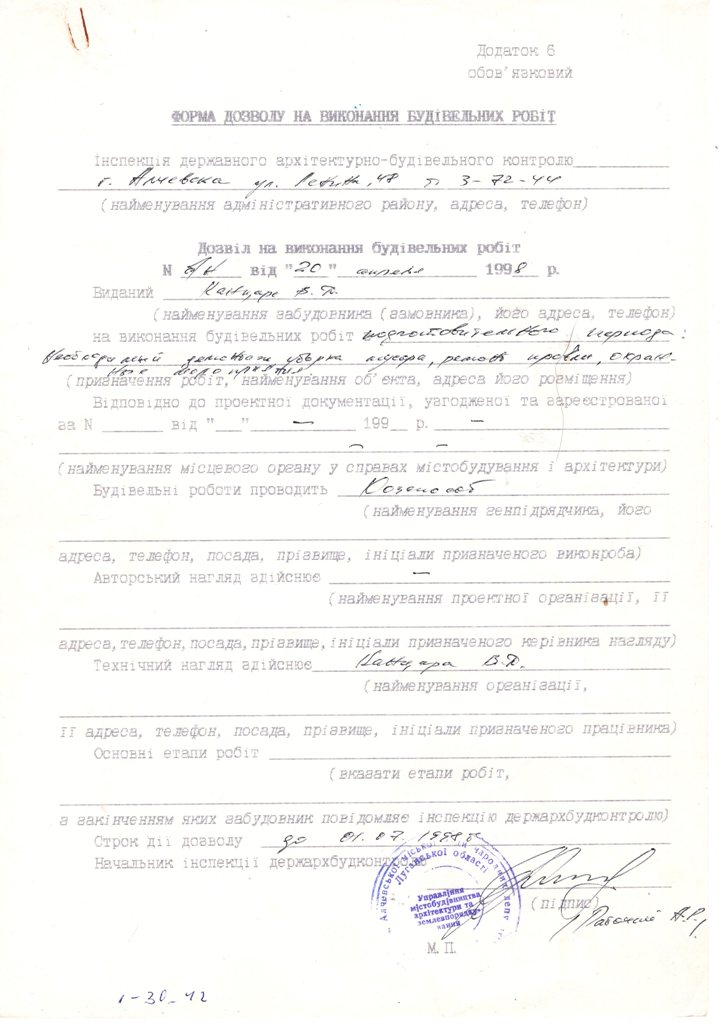 Додаток 6
обов'язковий
ФОРМА ДОЗВОЛУ НА ВИКОНАННЯ БУДІВЕЛЬНИХ РОБІТ
Інспекція державного архітектурно-будівельного контролю
г. Алчевска ул. Ленина, 48 т 3-72-44
(найменування адміністративного району, адреса, телефон)
Дозвіл на виконання будівельних робіт
N від "20" апреля 1998 р.
Виданий Канцара В.П.
(найменування забудовника (замовника), його адреса, телефон)
на виконання будівельних робіт подготовительного периода:
уборка мусора, ремонт кровли, охран-
ные мероприятия
(призначення робіт, найменування об'єкта, адреса його розміщення)
Відповідно до проектної документації, узгодженої та зареєстрованої
за N ___ від "__" — 199_ р. —
(найменування місцевого органу у справах містобудування і архітектури)
Будівельні роботи проводить Хозспособ
(найменування генпідрядчика, його
адреса, телефон, посада, прізвище, ініціали призначеного виконроба)
Авторський нагляд здійснює —
(найменування проектної організації, її
адреса, телефон, посада, прізвище, ініціали призначеного керівника нагляду)
Технічний нагляд здійснює Канцара В.П.
(найменування організації,
її адреса, телефон, посада, прізвище, ініціали призначеного працівника)
Основні етапи робіт
(вказати етапи робіт,
з закінченням яких забудовник повідомляє інспекцію держархбудконтролю)
Строк дії дозволу до 01.07.1998г
Начальник інспекції держархбудконтролю
Алчевської міської Ради народних депу
Луганської області
Управління
містобудівництва,
архітектури та
землевпорядку-
вання
(підпис)
М.П.